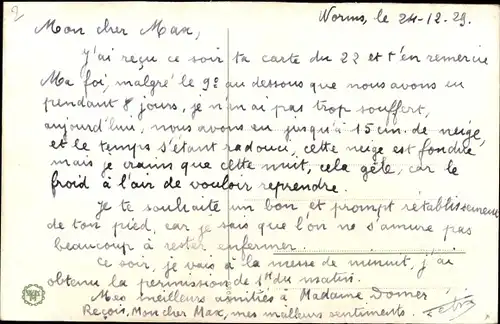 2
Worms, le 24-12.29.
Mon cher Max,
J'ai reçu ce soir ta carte du 22 et t'en remercie
Ma foi, malgré le 9° au dessous que nous avons eu
pendant 8 jours, je n'en ai pas trop souffert,
aujourd'hui, nous avons eu jusqu'à 15 cm. de neige,
et le temps s'étant radouci, cette neige est fondue
mais je crains que cette nuit, cela gèle, car le
froid à l'air de vouloir reprendre.
Je te souhaite un bon et prompt rétablissement
de ton pied, car je sais que l'on ne s'amuse pas
beaucoup à rester enfermer.
Ce soir, je vais à la messe de minuit, j'ai
obtenu la permission de 1h du matin.
Mes meilleurs amitiés à Madame Domer
Reçois, Mon cher Max, mes meilleurs sentiments.